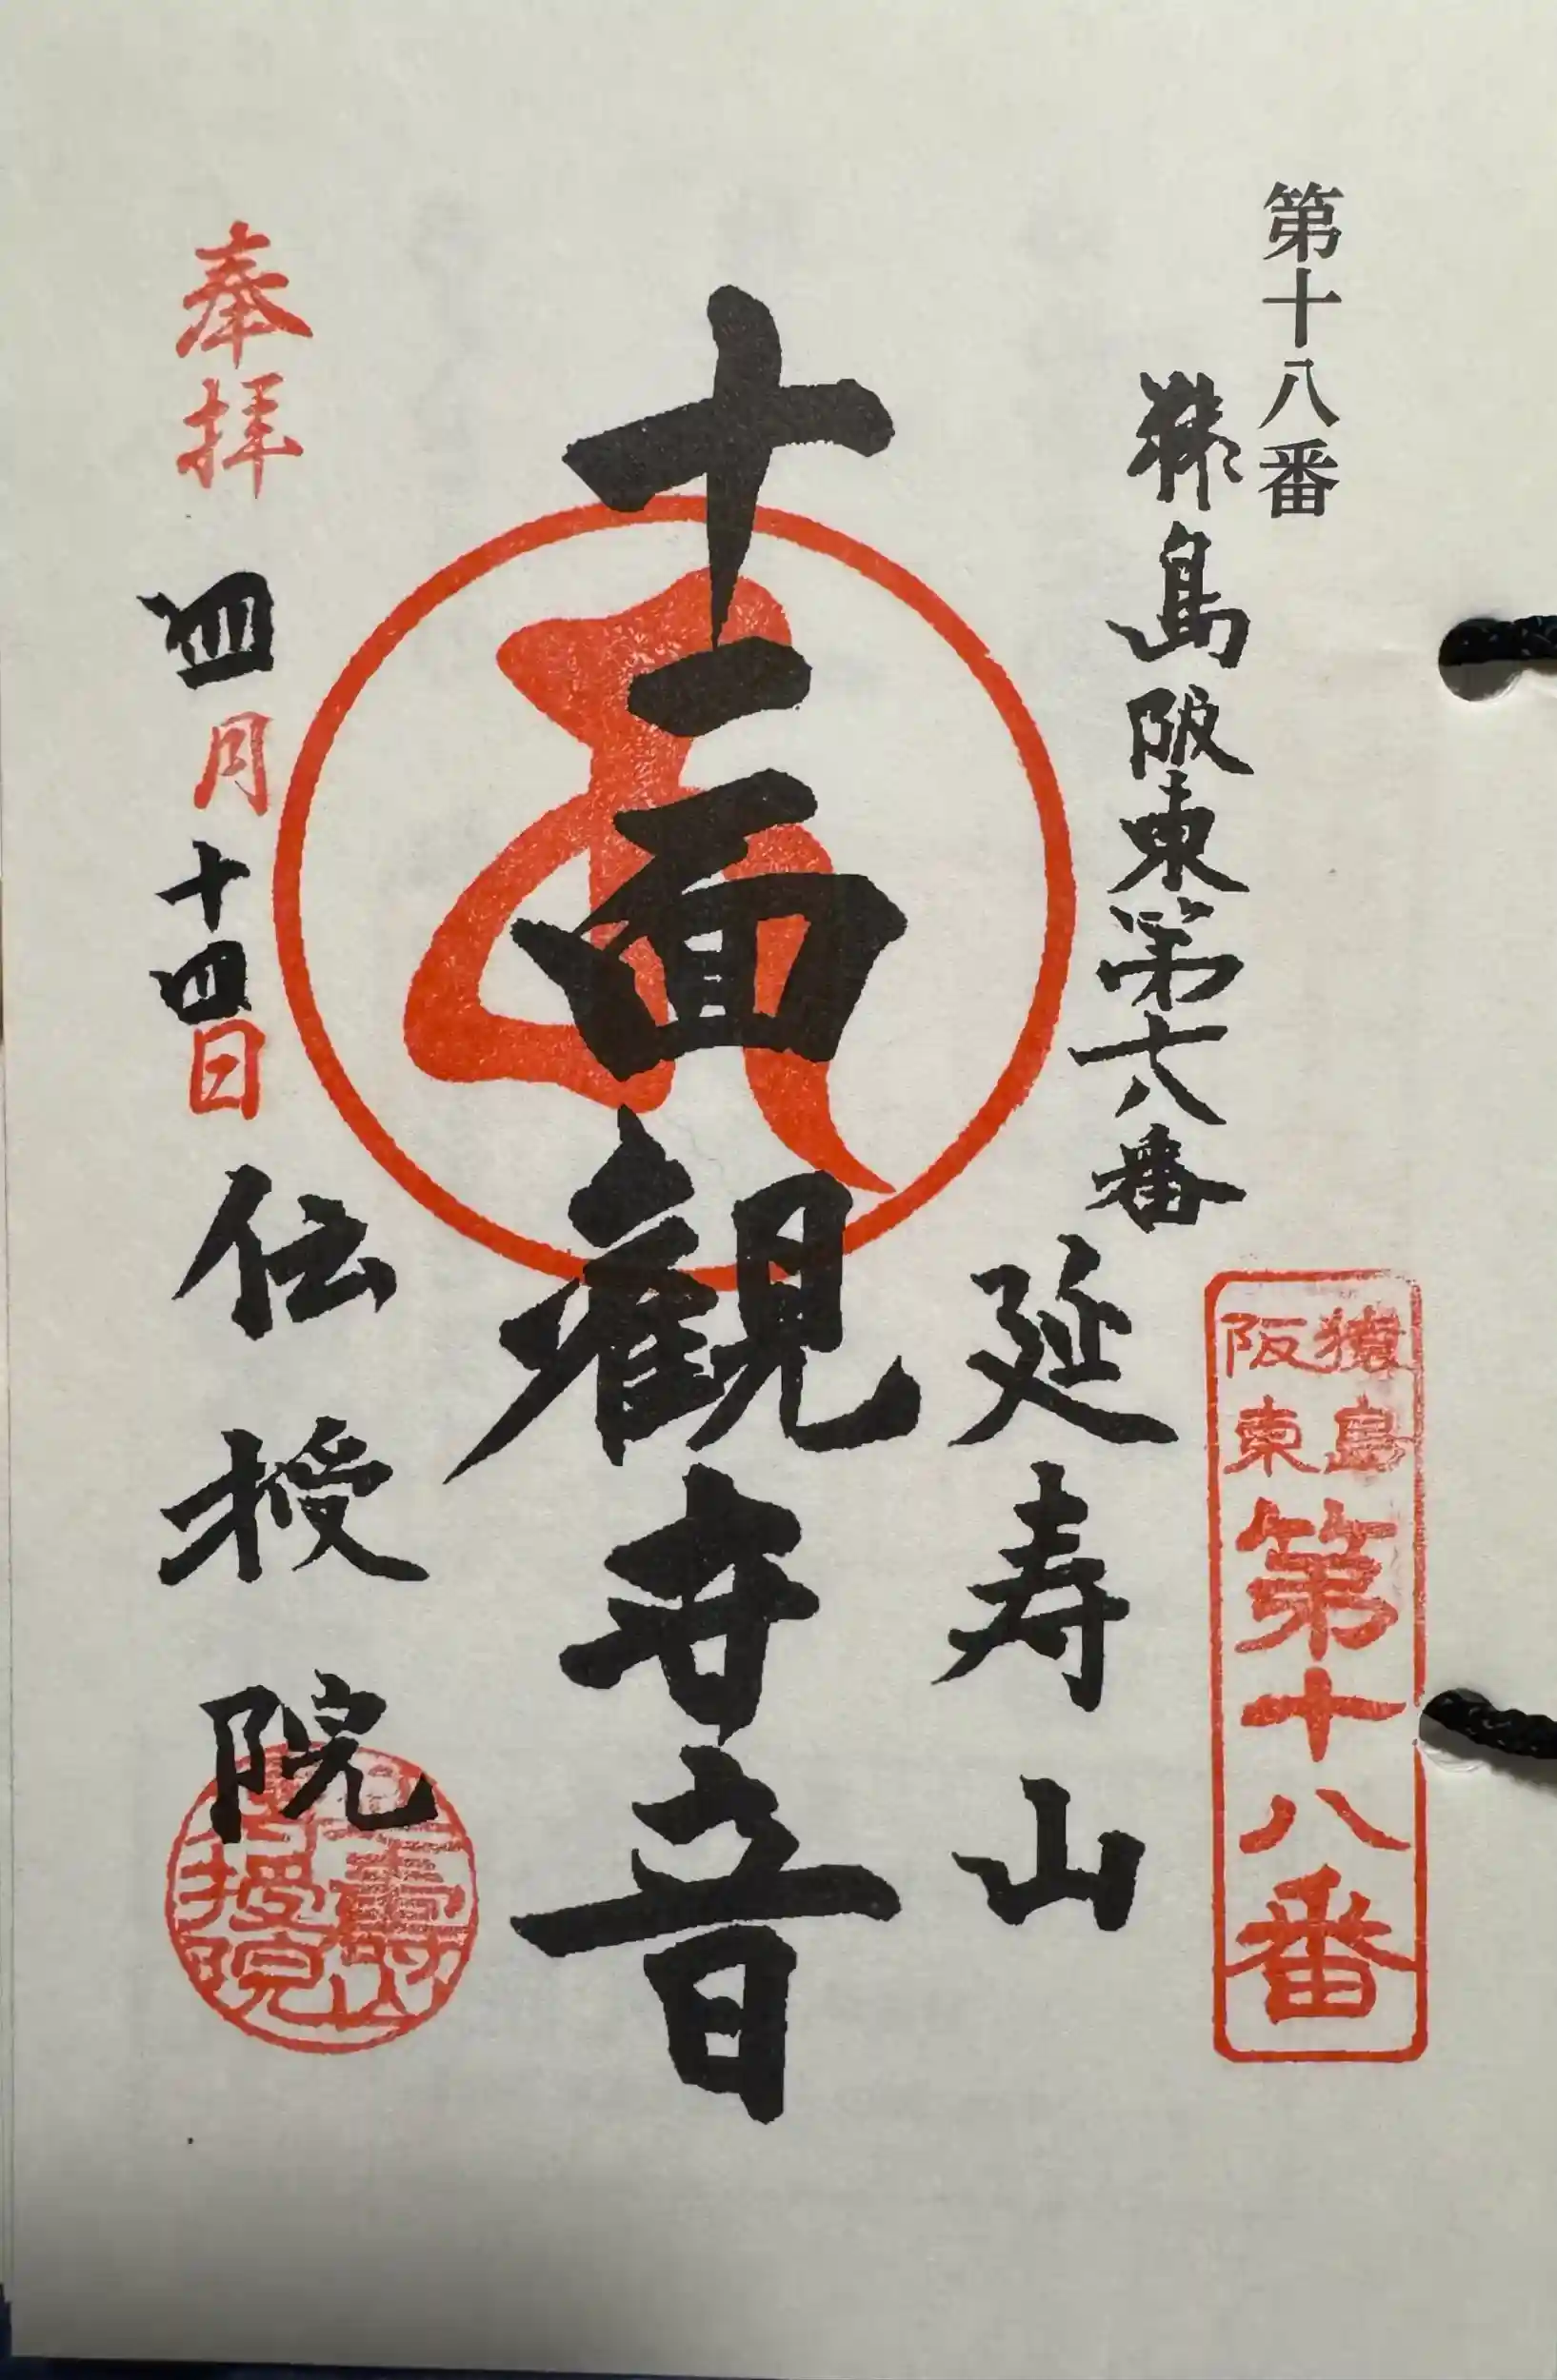 第十八番
猿島阪東第十八番
延寿山
猿島
阪東
第十八番
十一面観世音
奉拝 四月十四日
伝授院
壽山
授院